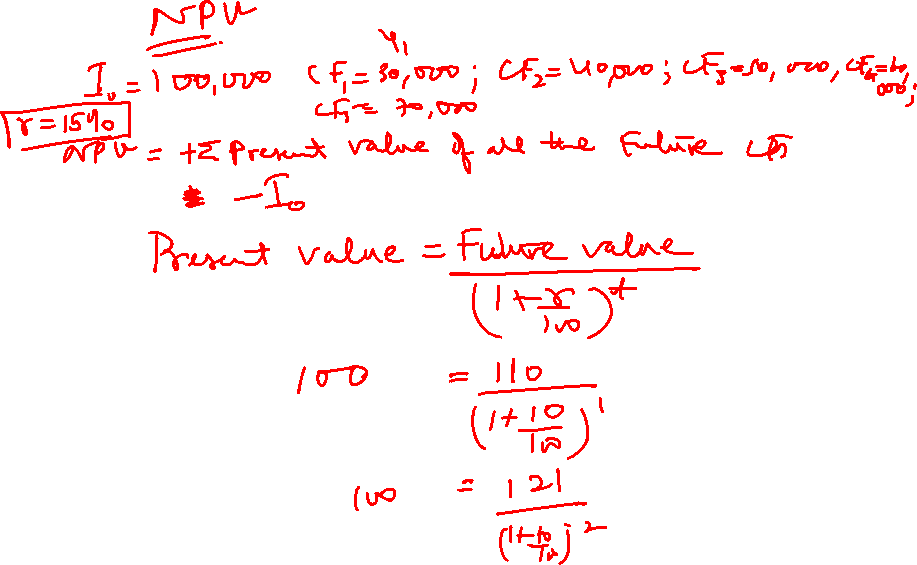 NPV
Y1
I0 = 100,000 CF1 = 30,000 ; CF2 = 40,000 ; CF3 = 50,000, CF4 = 60,000;
CF5 = 70,000
r = 15%
NPV = +Σ Present value of all the Future CFs
- I0
Present value = Future value / (1 + r/100)^t
100 = 110 / (1 + 10/100)^1
100 = 121 / (1 + 10/100)^2